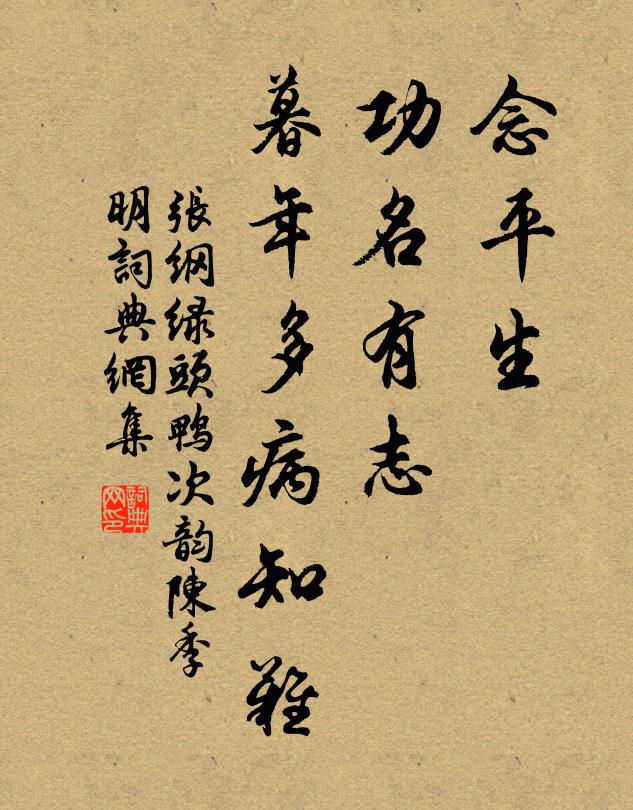 念平生
功名有志
暮年多病知難
張綱綠頭鴨次韵陳季
明詞典網集
詞典
网印